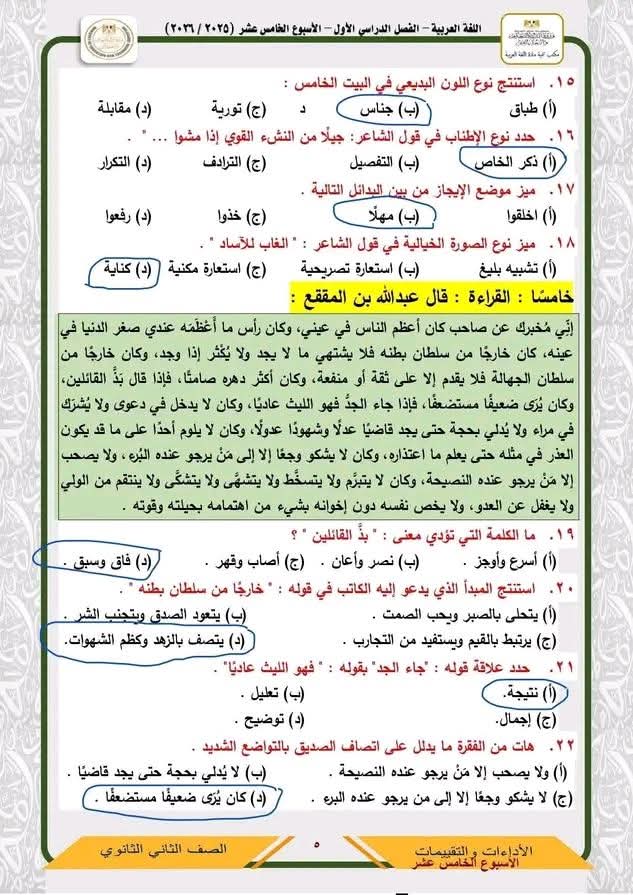 اللغة العربية – الفصل الدراسي الأول – الأسبوع الخامس عشر (٢٠٢٥ / ٢٠٢٦)
مكتب تنمية مادة اللغة العربية
١٥. استنتج نوع اللون البديعي في البيت الخامس :
(أ) طباق (ب) جناس د (ج) تورية (د) مقابلة
١٦. حدد نوع الإطناب في قول الشاعر: جيلًا من النشء القوي إذا مشوا ... " .
(أ) ذكر الخاص (ب) التفصيل (ج) الترادف (د) التكرار
١٧. ميز موضع الإيجاز من بين البدائل التالية .
(أ) اخلقوا (ب) مهلًا (ج) خذوا (د) رفعوا
١٨. ميز نوع الصورة الخيالية في قول الشاعر : " الغاب للآساد " .
(أ) تشبيه بليغ (ب) استعارة تصريحية (ج) استعارة مكنية (د) كناية
خامسًا : القراءة : قال عبدالله بن المقفع :
إنّي مُخبرك عن صاحب كان أعظم الناس في عيني، وكان رأس ما أَعْظَمَه عندي صغر الدنيا في
عينه، كان خارجًا من سلطان بطنه فلا يشتهي ما لا يجد ولا يُكْثر إذا وجد، وكان خارجًا من
سلطان الجهالة فلا يقدم إلا على ثقة أو منفعة، وكان أكثر دهره صامتًا، فإذا قال بَذَّ القائلين،
وكان يُرَى ضعيفًا مستضعفًا، فإذا جاء الجدُّ فهو الليث عاديًا، وكان لا يدخل في دعوى ولا يُشرَك
في مراء ولا يُدلي بحجة حتى يجد قاضيًا عدلًا وشهودًا عدولًا، وكان لا يلوم أحدًا على ما قد يكون
العذر في مثله حتى يعلم ما اعتذاره، وكان لا يشكو وجعًا إلا إلى مَنْ يرجو عنده البُرء، ولا يصحب
إلا مَنْ يرجو عنده النصيحة، وكان لا يتبرَّم ولا يتسخَّط ولا يتشهَّى ولا يتشكَّى ولا ينتقم من الولي
ولا يغفل عن العدو، ولا يخص نفسه دون إخوانه بشيء من اهتمامه بحيلته وقوته .
١٩. ما الكلمة التي تؤدي معنى : " بذَّ القائلين " ؟
(أ) أسرع وأوجز . (ب) نصر وأعان . (ج) أصاب وقهر . (د) فاق وسبق .
٢٠. استنتج المبدأ الذي يدعو إليه الكاتب في قوله : " خارجًا من سلطان بطنه " .
(أ) يتحلى بالصبر ويحب الصمت . (ب) يتعود الصدق ويتجنب الشر .
(ج) يرتبط بالقيم ويستفيد من التجارب . (د) يتصف بالزهد وكظم الشهوات.
٢١. حدد علاقة قوله : "جاء الجد" بقوله : " فهو الليث عاديًا" .
(أ) نتيجة. (ب) تعليل .
(ج) إجمال. (د) توضيح .
٢٢. هات من الفقرة ما يدلل على اتصاف الصديق بالتواضع الشديد .
(أ) ولا يصحب إلا مَنْ يرجو عنده النصيحة . (ب) لا يُدلي بحجة حتى يجد قاضيًا .
(ج) لا يشكو وجعًا إلا إلى من يرجو عنده البرء . (د) كان يُرَى ضعيفًا مستضعفًا .
الأداءات والتقييمات ٥ الصف الثاني الثانوي
الأسبوع الخامس عشر